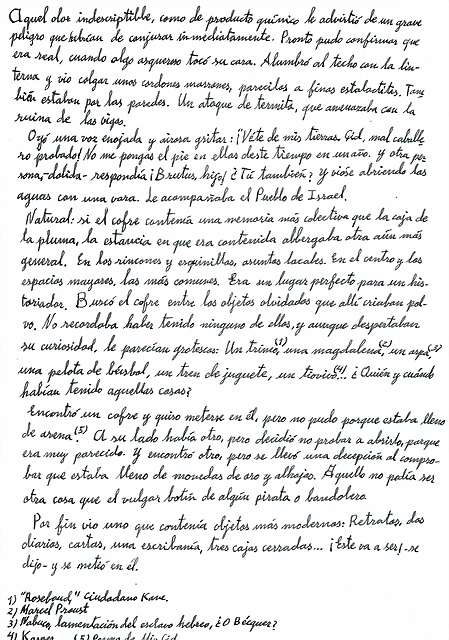 Aquel olor indescriptible, como de producto químico le advirtió de un grave
peligro que habían de conjurar inmediatamente. Pronto pudo confirmar que
era real, cuando algo asqueroso tocó su cara. Alumbró al techo con la lin-
terna y vio colgar unos cordones marrones, parecidos a finas estalactitas. Tam
bién estaban por las paredes. Un ataque de termita, que amenazaba con la
ruina de las vigas.
Oyó una voz enojada y airosa gritar: ¡Véte de mis tierras Cid, mal caballe
ro probado! No me pongas el pie en ellas deste tiempo en un año. Y otra per
sona, dolida- respondía ¡Brutus, hijo! ¿Tú también; Y vióse abriendo las
aguas con una vara. Le acompañaba el Pueblo de Israel.
Natural: si el cofre contenía una memoria más colectiva que la caja de
la pluma, la estancia en que era contenida albergaba otra aún más
general. En los rincones y esquinillas, asuntos locales. En el centro y los
espacios mayores las más comunes. Era un lugar perfecto para un his-
toriador. Buscó el cofre entre los objetos olvidados que allí criaban pol-
vo. No recordaba haber tenido ninguno de ellos, y aunque despertaban
su curiosidad, le parecían grotescos: Un trineo,(1) una magdalena,(2) un arpa,(3)
una pelota de béisbol, un tren de juguete, un tiovivo(4)... ¿Quién y cuándo
habían tenido aquellas cosas?
Encontró un cofre y quiso meterse en él, pero no pudo porque estaba lleno
de arena.(5) A su lado había otro, pero decidió no probar a abrirlo, porque
era muy parecido. Y encontró otro, pero se llevó una decepción al compro-
bar que estaba lleno de monedas de oro y alhajas. Aquello no podía ser
otra cosa que el vulgar botín de algún pirata o bandolero.
Por fin vio uno que contenía objetos más modernos: Retratos, dos
diarios, cartas, una escribanía, tres cajas cerradas... ¡Este va a ser!-se
dijo- y se metió en él.
1) "Rosebud," Ciudadano Kane.
2) Marcel Proust
3) Nabuco, lamentación del esclavo hebreo, ¿O Bécquer?
4) (5) Poema de Mio Cid